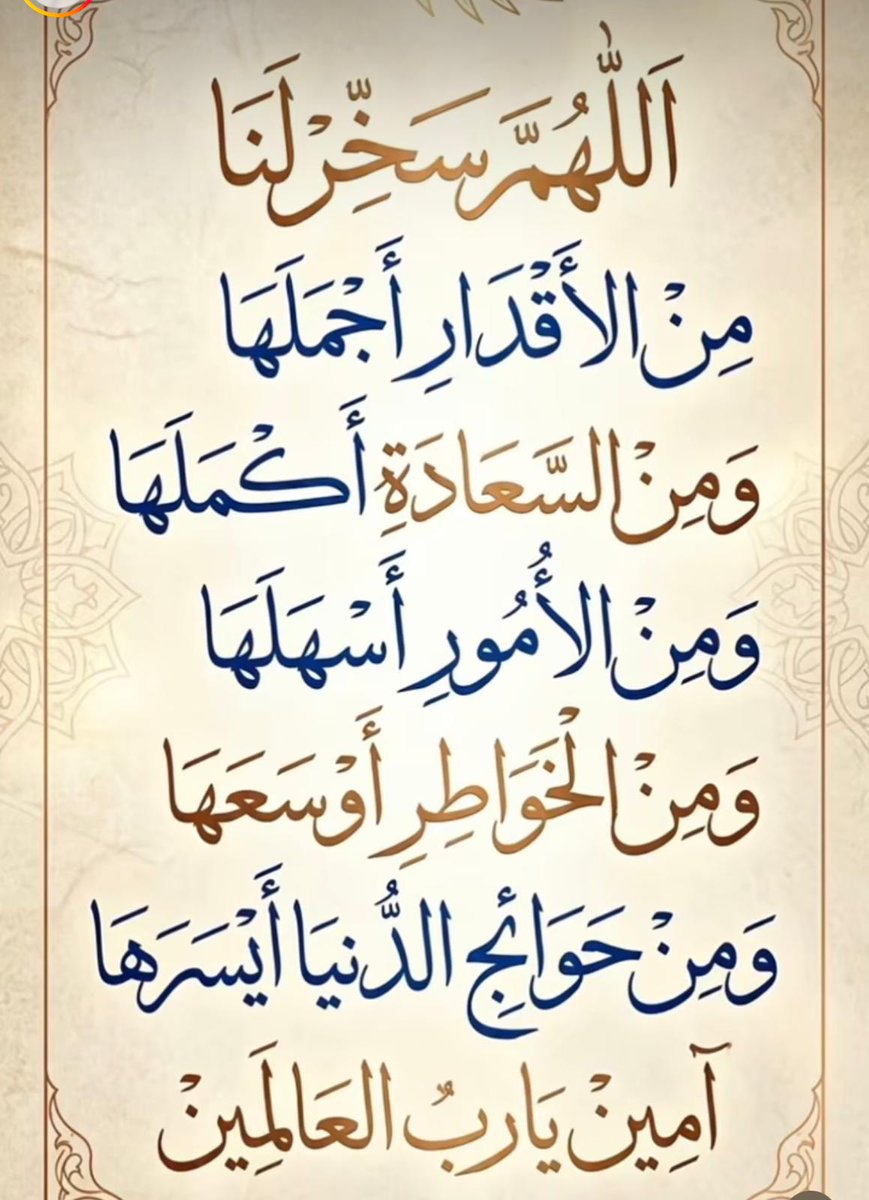 اَللّٰهُمَّ سَخِّرْ لَنَا
مِنْ الأَقْدَارِ أَجْمَلَهَا
وَمِنْ السَّعَادَةِ أَكْمَلَهَا
وَمِنْ الأُمُورِ أَسْهَلَهَا
وَمِنْ الْخَوَاطِرِ أَوْسَعَهَا
وَمِنْ حَوَائِجِ الدُّنيَا أَيْسَرَهَا
آمِينْ يَاربٌ العَالَمِينْ